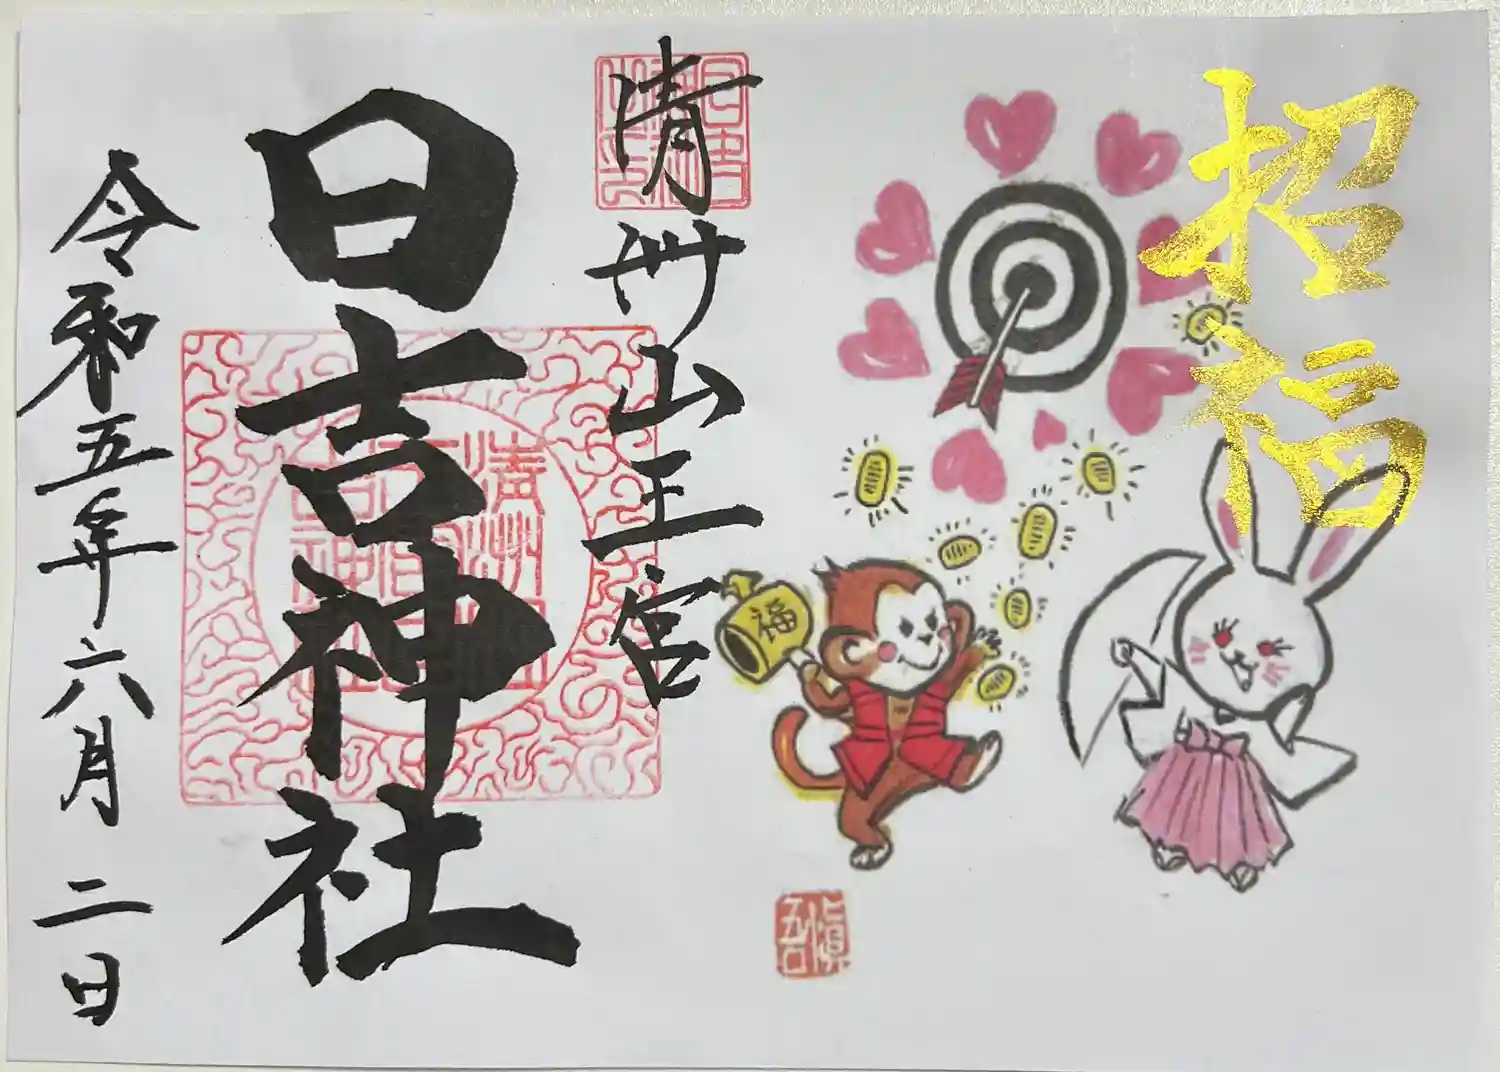 招福
福
清州山王宮
日吉神社
令和五年六月二日
慎吾